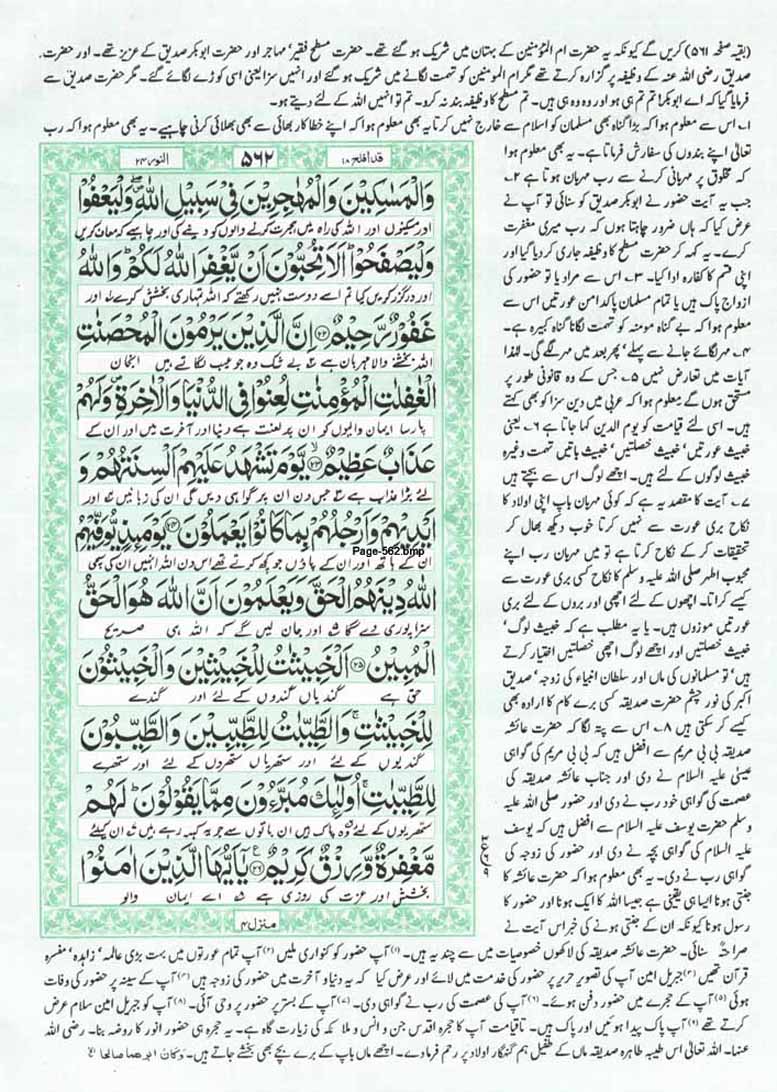 (بقیہ صفحہ ۵۶۱) کریں گے کیونکہ یہ حضرت ام المؤمنین کے بہتان میں شریک ہو گئے تھے۔ حضرت مسطح فقیر' مہاجر اور حضرت ابوبکر صدیق کے عزیز تھے۔ اور حضرت
صدیق رضی اللہ عنہ کے وظیفہ پر گزارہ کرتے تھے مگر ام المومنین کو تہمت لگانے میں شریک ہو گئے اور انہیں سزا یعنی اسی کوڑے لگائے گئے۔ مگر حضرت صدیق سے
فرمایا گیا کہ اے ابوبکر! تم تم ہی ہو اور وہ وہ ہی ہیں۔ تم مسطح کا وظیفہ بند نہ کرو۔ تم تو انہیں اللہ کے لئے دیتے ہو۔
۱۔ اس سے معلوم ہوا کہ بڑا گناہ بھی مسلمان کو اسلام سے خارج نہیں کرتا یہ بھی معلوم ہوا کہ اپنے خطا کار بھائی سے بھی بھلائی کرنی چاہیے۔ یہ بھی معلوم ہوا کہ رب
تعالیٰ اپنے بندوں کی سفارش فرماتا ہے۔ یہ بھی معلوم ہوا
کہ مخلوق پر مہربانی کرنے سے رب مہربان ہوتا ہے ۲۔
جب یہ آیت حضور نے ابوبکر صدیق کو سنائی تو آپ نے
عرض کیا کہ ہاں ضرور چاہتا ہوں کہ رب میری مغفرت
کرے۔ یہ کہہ کر حضرت مسطح کا وظیفہ جاری کر دیا گیا اور
اپنی قسم کا کفارہ ادا کیا۔ ۳۔ اس سے مراد یا تو حضور کی
ازواج پاک ہیں یا تمام مسلمان پاکدامن عورتیں اس سے
معلوم ہوا کہ بے گناہ مومنہ کو تہمت لگانا گناہ کبیرہ ہے۔
۴۔ مہر لگائے جانے سے پہلے' پھر بعد میں مہر لگے گی۔ لہٰذا
آیات میں تعارض نہیں ۵۔ جس کے وہ قانونی طور پر
مستحق ہوں گے معلوم ہوا کہ عربی میں دین سزا کو بھی کہتے
ہیں۔ اسی لئے قیامت کو یوم الدین کہا جاتا ہے ۶۔ یعنی
خبیث عورتیں' خبیث خصلتیں' خبیث باتیں تہمت وغیرہ
خبیث لوگوں کے لئے ہیں۔ اچھے لوگ اس سے بچتے ہیں
۷۔ آیت کا مقصد یہ ہے کہ کوئی مہربان باپ اپنی اولاد کا
نکاح بری عورت سے نہیں کرتا خوب دیکھ بھال کر
تحقیقات کر کے نکاح کرتا ہے تو میں مہربان رب اپنے
محبوب اطہر صلی اللہ علیہ وسلم کا نکاح کسی بری عورت سے
کیسے کراتا۔ اچھوں کے لئے اچھی اور بروں کے لئے بری
عورتیں موزوں ہیں۔ یا یہ مطلب ہے کہ خبیث لوگ'
خبیث خصلتیں اور اچھے لوگ اچھی خصلتیں اختیار کرتے
ہیں' تو مسلمانوں کی ماں اور سلطان انبیاء کی زوجہ' صدیق
اکبر کی نور چشم حضرت صدیقہ کسی برے کام کا ارادہ بھی
کیسے کر سکتی ہیں ۸۔ اس سے پتہ لگا کہ حضرت عائشہ
صدیقہ بی بی مریم سے افضل ہیں کہ بی بی مریم کی گواہی
عیسیٰ علیہ السلام نے دی اور جناب عائشہ صدیقہ کی
عصمت کی گواہی خود رب نے دی اور حضور صلی اللہ علیہ
وسلم حضرت یوسف علیہ السلام سے افضل ہیں کہ یوسف
علیہ السلام کی گواہی بچہ نے دی اور حضور کی زوجہ کی
گواہی رب نے دی۔ یہ بھی معلوم ہوا کہ حضرت عائشہ کا
جنتی ہونا ایسا ہی یقینی ہے جیسا اللہ کا ایک ہونا اور حضور کا
رسول ہونا کیونکہ ان کے جنتی ہونے کی خبر اس آیت نے
قد افلح ۱۸
۵۶۲
النور ۲۴
وَالْمَسٰكِيْنَ وَالْمُهٰجِرِيْنَ فِيْ سَبِيْلِ اللّٰهِ ۖ وَلْيَعْفُوْا
اور مسکینوں اور اللہ کی راہ میں ہجرت کرنے والوں کو دینے کی اور چاہیے کہ معاف کریں
وَلْيَصْفَحُوْا ۗ اَلَا تُحِبُّوْنَ اَنْ يَّغْفِرَ اللّٰهُ لَكُمْ ۗ وَاللّٰهُ
اور درگزر کریں کیا تم اسے دوست نہیں رکھتے کہ اللہ تمہاری بخشش کرے اور
غَفُوْرٌ رَّحِيْمٌ ۝۲۲ اِنَّ الَّذِيْنَ يَرْمُوْنَ الْمُحْصَنٰتِ
اللہ بخشنے والا مہربان ہے بے شک وہ جو عیب لگاتے ہیں انجان
الْغٰفِلٰتِ الْمُؤْمِنٰتِ لُعِنُوْا فِي الدُّنْيَا وَالْاٰخِرَةِ ۪ وَلَهُمْ
پارسا ایمان والیوں کو ان پر لعنت ہے دنیا اور آخرت میں اور ان کے
عَذَابٌ عَظِيْمٌ ۝۲۳ يَّوْمَ تَشْهَدُ عَلَيْهِمْ اَلْسِنَتُهُمْ وَ
لئے بڑا عذاب ہے جس دن ان پر گواہی دیں گی ان کی زبانیں اور
اَيْدِيْهِمْ وَاَرْجُلُهُمْ بِمَا كَانُوْا يَعْمَلُوْنَ ۝۲۴ يَوْمَئِذٍ يُّوَفِّيْهِمُ
Page-562.bmp
ان کے ہاتھ اور ان کے پاؤں جو کچھ کرتے تھے اس دن اللہ انہیں ان کی سچی
اللّٰهُ دِيْنَهُمُ الْحَقَّ وَيَعْلَمُوْنَ اَنَّ اللّٰهَ هُوَ الْحَقُّ
سزا پوری دے گا اور جان لیں گے کہ اللہ ہی صریح
الْمُبِيْنُ ۝۲۵ اَلْخَبِيْثٰتُ لِلْخَبِيْثِيْنَ وَالْخَبِيْثُوْنَ
حق ہے گندیاں گندوں کے لئے اور گندے
لِلْخَبِيْثٰتِ ۚ وَالطَّيِّبٰتُ لِلطَّيِّبِيْنَ وَالطَّيِّبُوْنَ
گندیوں کے لئے اور ستھریاں ستھروں کے لئے اور ستھرے
لِلطَّيِّبٰتِ ۚ اُولٰٓئِكَ مُبَرَّءُوْنَ مِمَّا يَقُوْلُوْنَ ۗ لَهُمْ
ستھریوں کے لئے وہ پاک ہیں ان باتوں سے جو یہ کہہ رہے ہیں ان کیلئے
مَّغْفِرَةٌ وَّرِزْقٌ كَرِيْمٌ ۝۲۶ يٰٓاَيُّهَا الَّذِيْنَ اٰمَنُوْا
بخشش اور عزت کی روزی ہے اے ایمان والو
منزل ۴
صراحتہً سنائی۔ حضرت عائشہ صدیقہ کی لاکھوں خصوصیات میں سے چند یہ ہیں۔ (۱) آپ حضور کو کنواری ملیں (۲) آپ تمام عورتوں میں بہت بڑی عالمہ' زاہدہ' مفسرہ
قرآن تھیں (۳) جبریل امین آپ کی تصویر حریر پر حضور کی خدمت میں لائے اور عرض کیا کہ یہ دنیا و آخرت میں حضور کی زوجہ ہیں (۴) آپ کے سینہ پر حضور کی وفات
ہوئی (۵) آپ کے حجرے میں حضور دفن ہوئے۔ (۶) آپ کی عصمت کی رب نے گواہی دی۔ (۷) آپ کے بستر پر حضور پر وحی آئی۔ (۸) آپ کو جبریل امین سلام عرض
کرتے تھے (۹) آپ پاک پیدا ہوئیں اور پاک ہیں۔ تاقیامت آپ کا حجرہ اقدس جن و انس و ملائکہ کی زیارت گاہ ہے۔ یہ حجرہ ہی حضور انور کا روضہ بنا۔ رضی اللہ
عنہا۔ اللہ تعالیٰ اس طیبہ طاہرہ صدیقہ ماں کے طفیل ہم گنہگار اولاد پر رحم فرما دے۔ اچھے ماں باپ کے برے بچے بھی بخشے جاتے ہیں۔ وَكَانَ اَبُوْهُمَا صَالِحًا